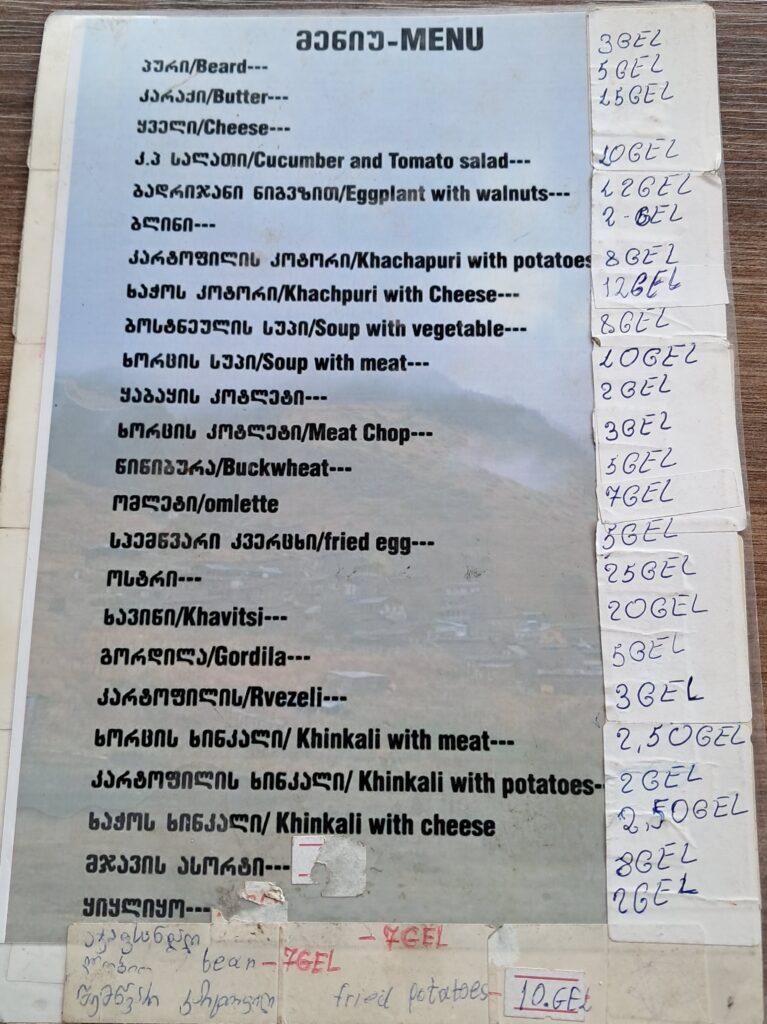 მენიუ-MENU
პური/Beard--- 3GEL
კარაქი/Butter--- 5GEL
ყველი/Cheese--- 15GEL
კ.პ სალათი/Cucumber and Tomato salad--- 10GEL
ბადრიჯანი ნიგვზით/Eggplant with walnuts--- 12GEL
ბლინი--- 2-GEL
კარტოფილის კოტორი/Khachapuri with potatoes 8GEL
ხაჭოს კოტორი/Khachpuri with Cheese--- 12GEL
ბოსტნეულის სუპი/Soup with vegetable--- 8GEL
ხორცის სუპი/Soup with meat--- 10GEL
ყაბაყის კოტლეტი--- 2GEL
ხორცის კოტლეტი/Meat Chop--- 3GEL
წინიბურა/Buckwheat--- 5GEL
ომლეტი/omlette 7GEL
სპემწვარი კვერცხი/fried egg--- 5GEL
ოსტრი--- 25GEL
ხავიწი/Khavitsi--- 20GEL
გორდილა/Gordila--- 5GEL
კარტოფილის/Rvezeli--- 3GEL
ხორცის ხინკალი/ Khinkali with meat--- 2,50GEL
კარტოფილის ხინკალი/ Khinkali with potatoes- 2GEL
ხაჭოს ხინკალი/ Khinkali with cheese 2,50GEL
მჟავის ასორტი--- 8GEL
ყიყლიყო--- 2GEL
აჯაფსანდალი - 7GEL
ლობიო bean - 7GEL
შემწვარი კარტოფილი fried potatoes- 10.GEL